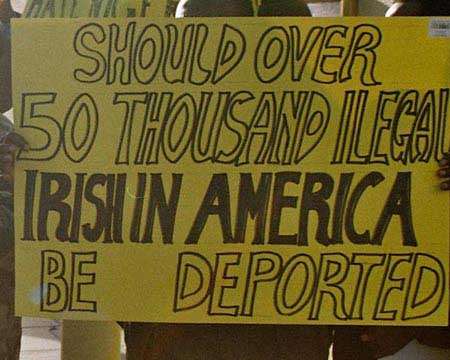 SHOULD OVER
50 THOUSAND ILEGAL
IRISH IN AMERICA
BE DEPORTED